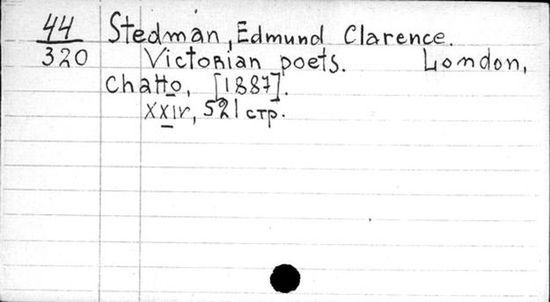 44 Stedman, Edmund Clarence.
320 Victorian poets. London,
Chatto, [1887].
XXIV, 521 стр.